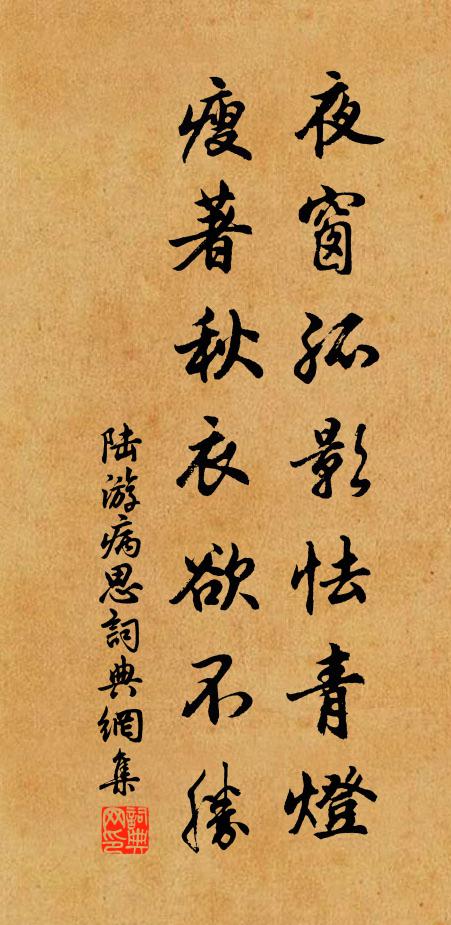 夜窗孤影怯青燈
瘦著秋衣欲不勝
陆游病思詞典網集
詞典網印